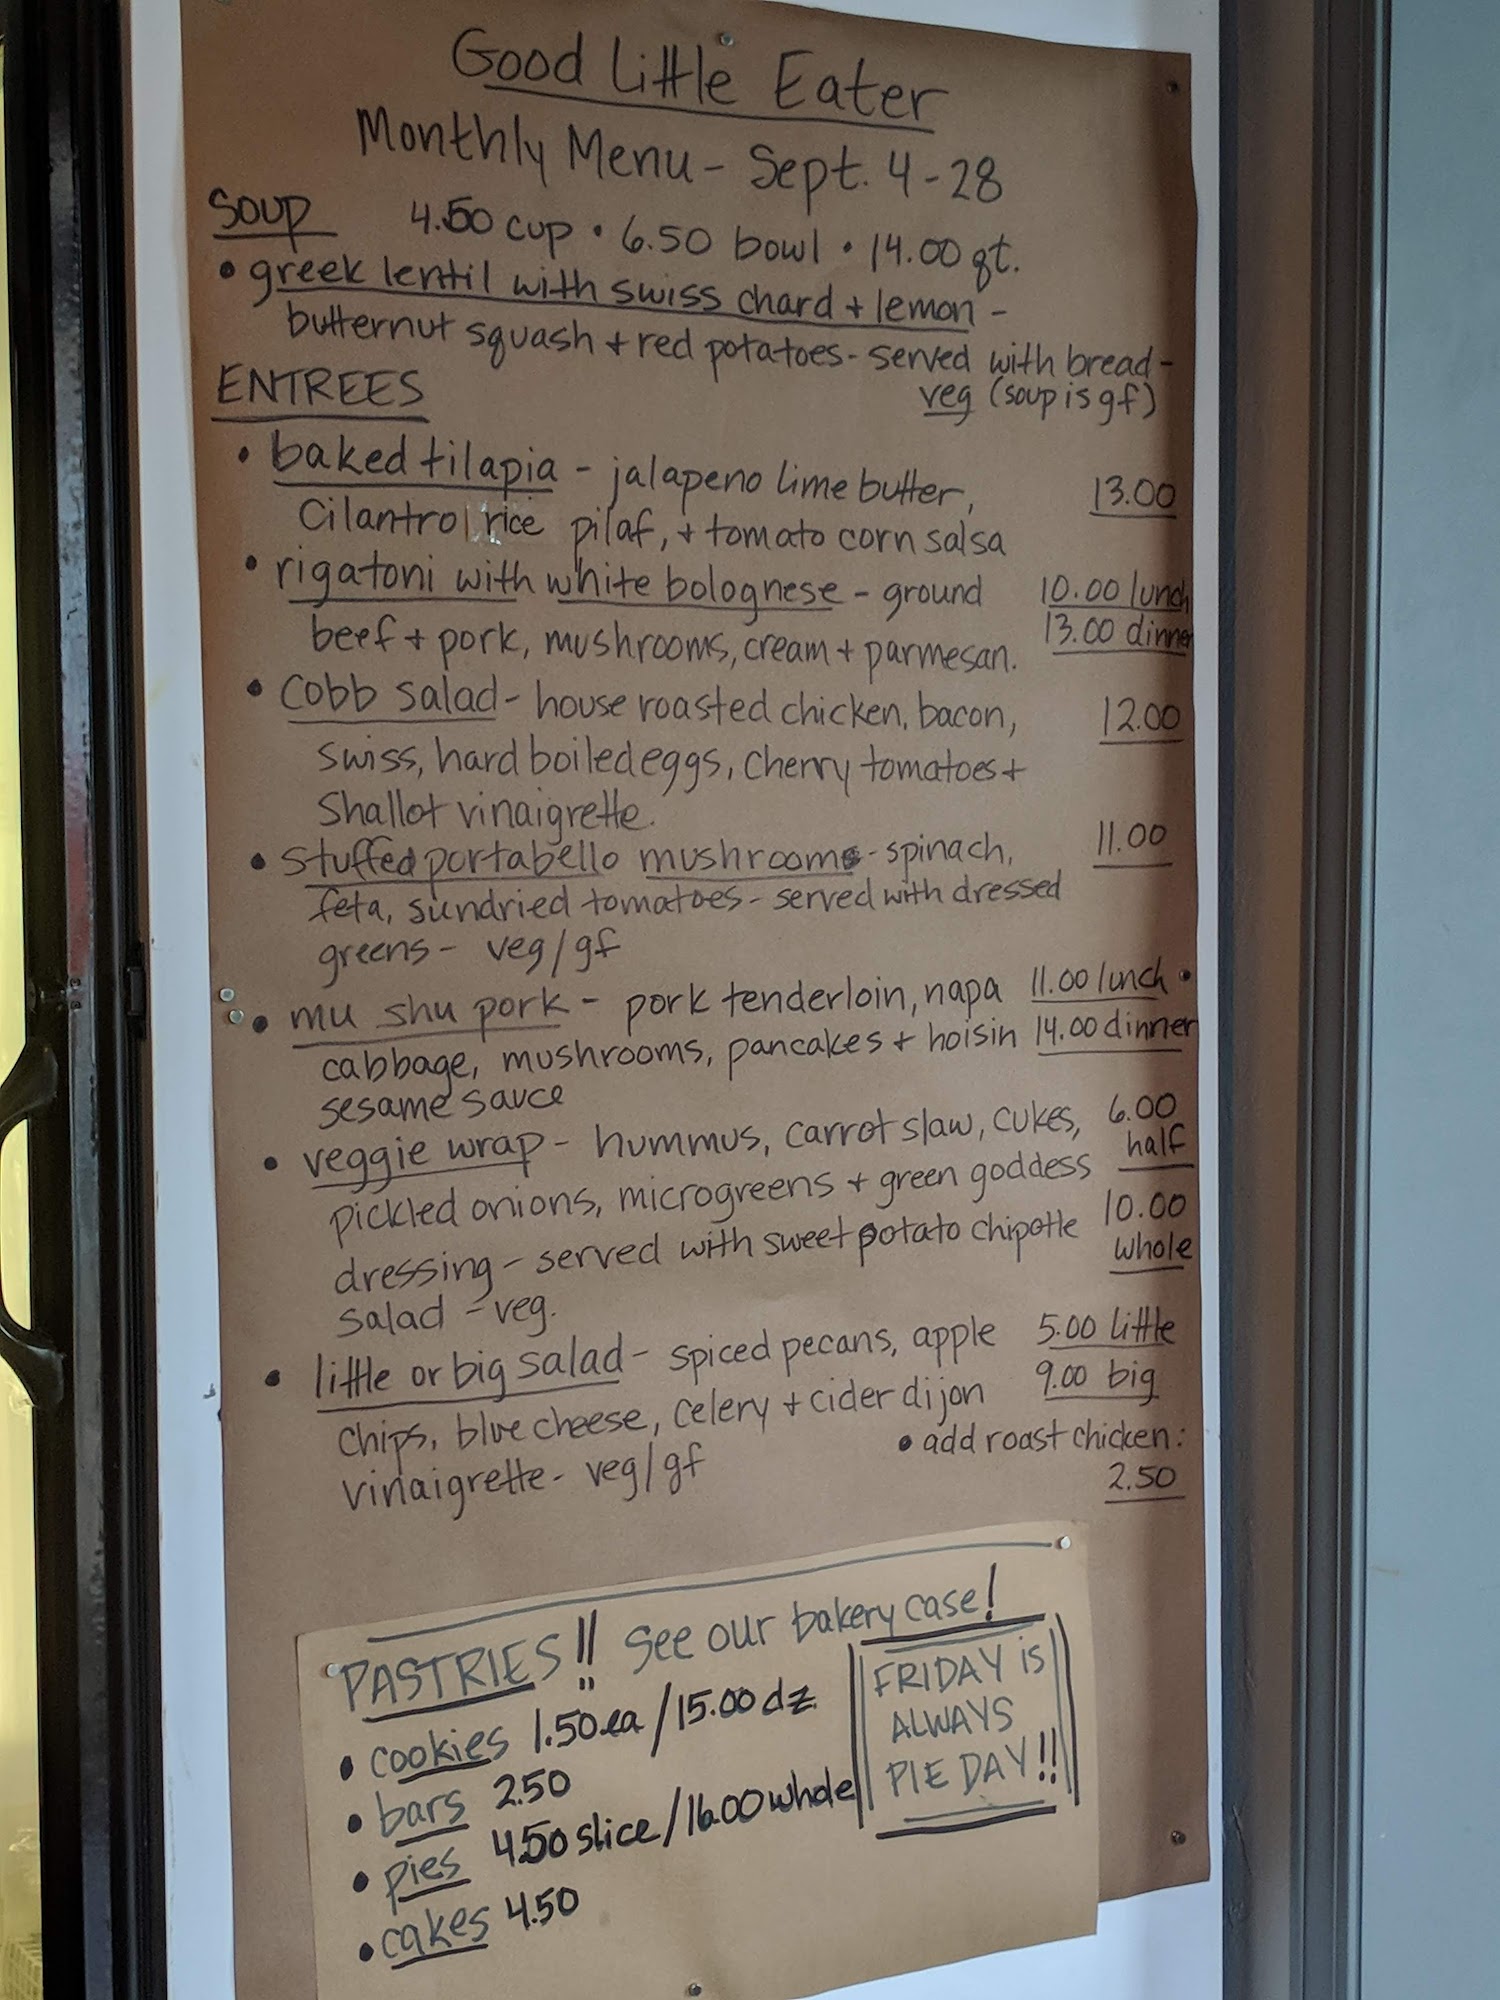 Good Little Eater
Monthly Menu - Sept. 4-28
SOUP 4.50 cup • 6.50 bowl • 14.00 qt.
• greek lentil with swiss chard + lemon -
butternut squash + red potatoes - served with bread -
veg (soup is gf)
ENTREES
• baked tilapia - jalapeno lime butter, 13.00
Cilantro rice pilaf, + tomato corn salsa
• rigatoni with white bolognese - ground 10.00 lunch
beef + pork, mushrooms, cream + parmesan. 13.00 dinner
• cobb salad - house roasted chicken, bacon, 12.00
swiss, hard boiled eggs, cherry tomatoes +
Shallot vinaigrette.
• stuffed portabello mushrooms - spinach, 11.00
feta, sundried tomatoes - served with dressed
greens - veg/gf
• mu shu pork - pork tenderloin, napa 11.00 lunch •
cabbage, mushrooms, pancakes + hoisin 14.00 dinner
sesame sauce
• veggie wrap - hummus, carrot slaw, cukes, 6.00
half
pickled onions, microgreens + green goddess
dressing - served with sweet potato chipotle 10.00
whole
salad - veg.
• little or big salad - spiced pecans, apple 5.00 little
chips, blue cheese, celery + cider dijon 9.00 big
vinaigrette - veg/gf • add roast chicken:
2.50
PASTRIES!! See our bakery case!
• cookies 1.50 ea / 15.00 dz
• bars 2.50
• pies 4.50 slice / 16.00 whole
• cakes 4.50
FRIDAY is
ALWAYS
PIE DAY!!